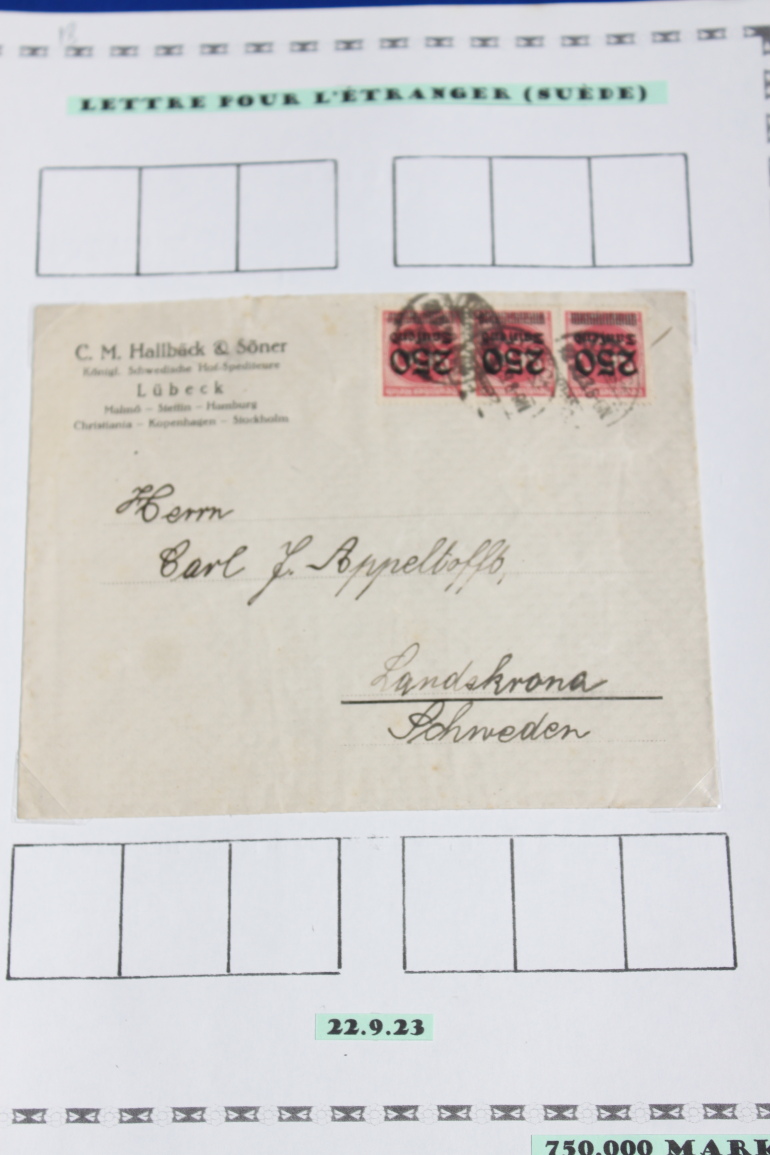 LETTRE POUR L'ÉTRANGER (SUÈDE)
C. M. Hallbäck & Söner
Königl. Schwedische Hof-Spediteure
Lübeck
Malmö – Stettin – Hamburg
Christiania – Kopenhagen – Stockholm
250 Tausend
250 Tausend
250 Tausend
Herrn
Carl J. Appeltofft,
Landskrona
Schweden
22.9.23
750.000 MARK